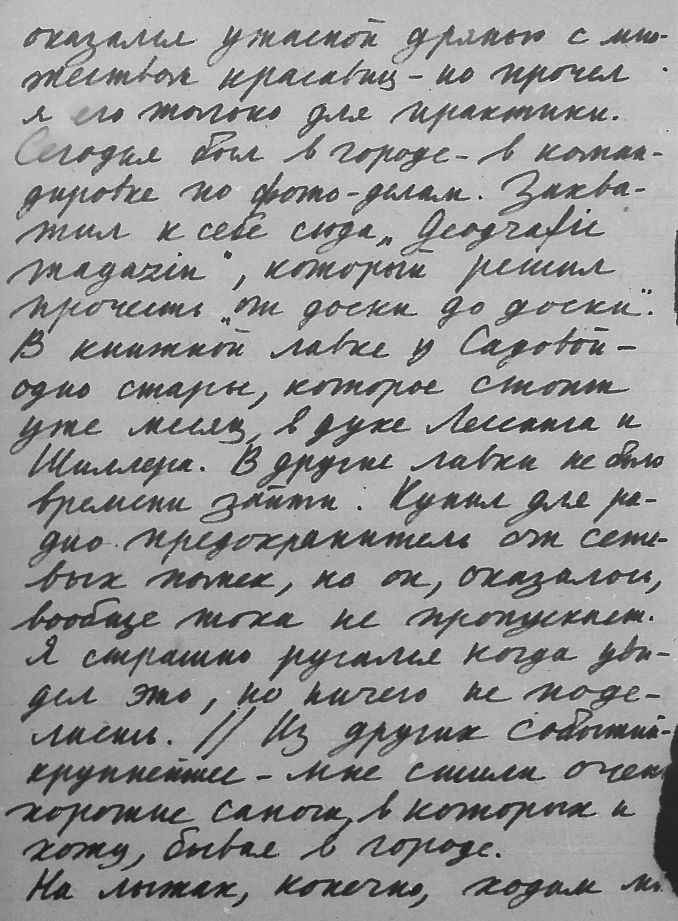 оказался ужасной дрянью с мно-
жеством красавиц – но прочел
я его только для практики.
Сегодня был в городе – в коман-
дировке по фото-делам. Захва-
тил к себе сюда „Geografic
magazin“, который решил
прочесть „от доски до доски“.
В книжной лавке у Садовой –
одно старье, которое стоит
уже месяц, в духе Лессинга и
Шиллера. В другие лавки не было
времени зайти. Купил для ра-
дио предохранитель от сете-
вых помех, но он, оказалось,
вообще тока не пропускает.
Я страшно ругался когда уви-
дел это, но ничего не поде-
лаешь. // Из других событий –
крупнейшее – мне сшили очень
хорошие сапоги, в которых и
хожу, бывая в городе.
На лыжах, конечно, ходим